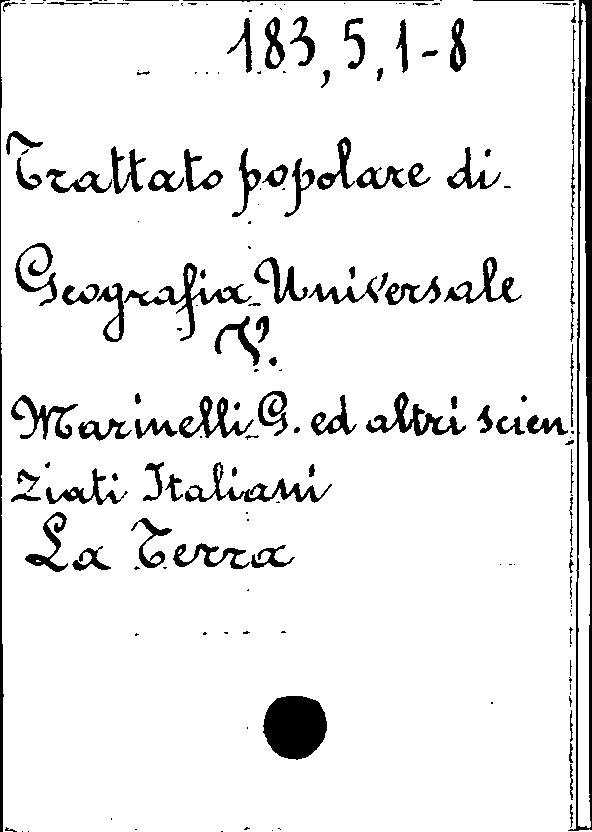 183,5,1-8
Trattato popolare di
Geografia Universale
V.
Marinelli G. ed altri scien
ziati Italiani
La Terra